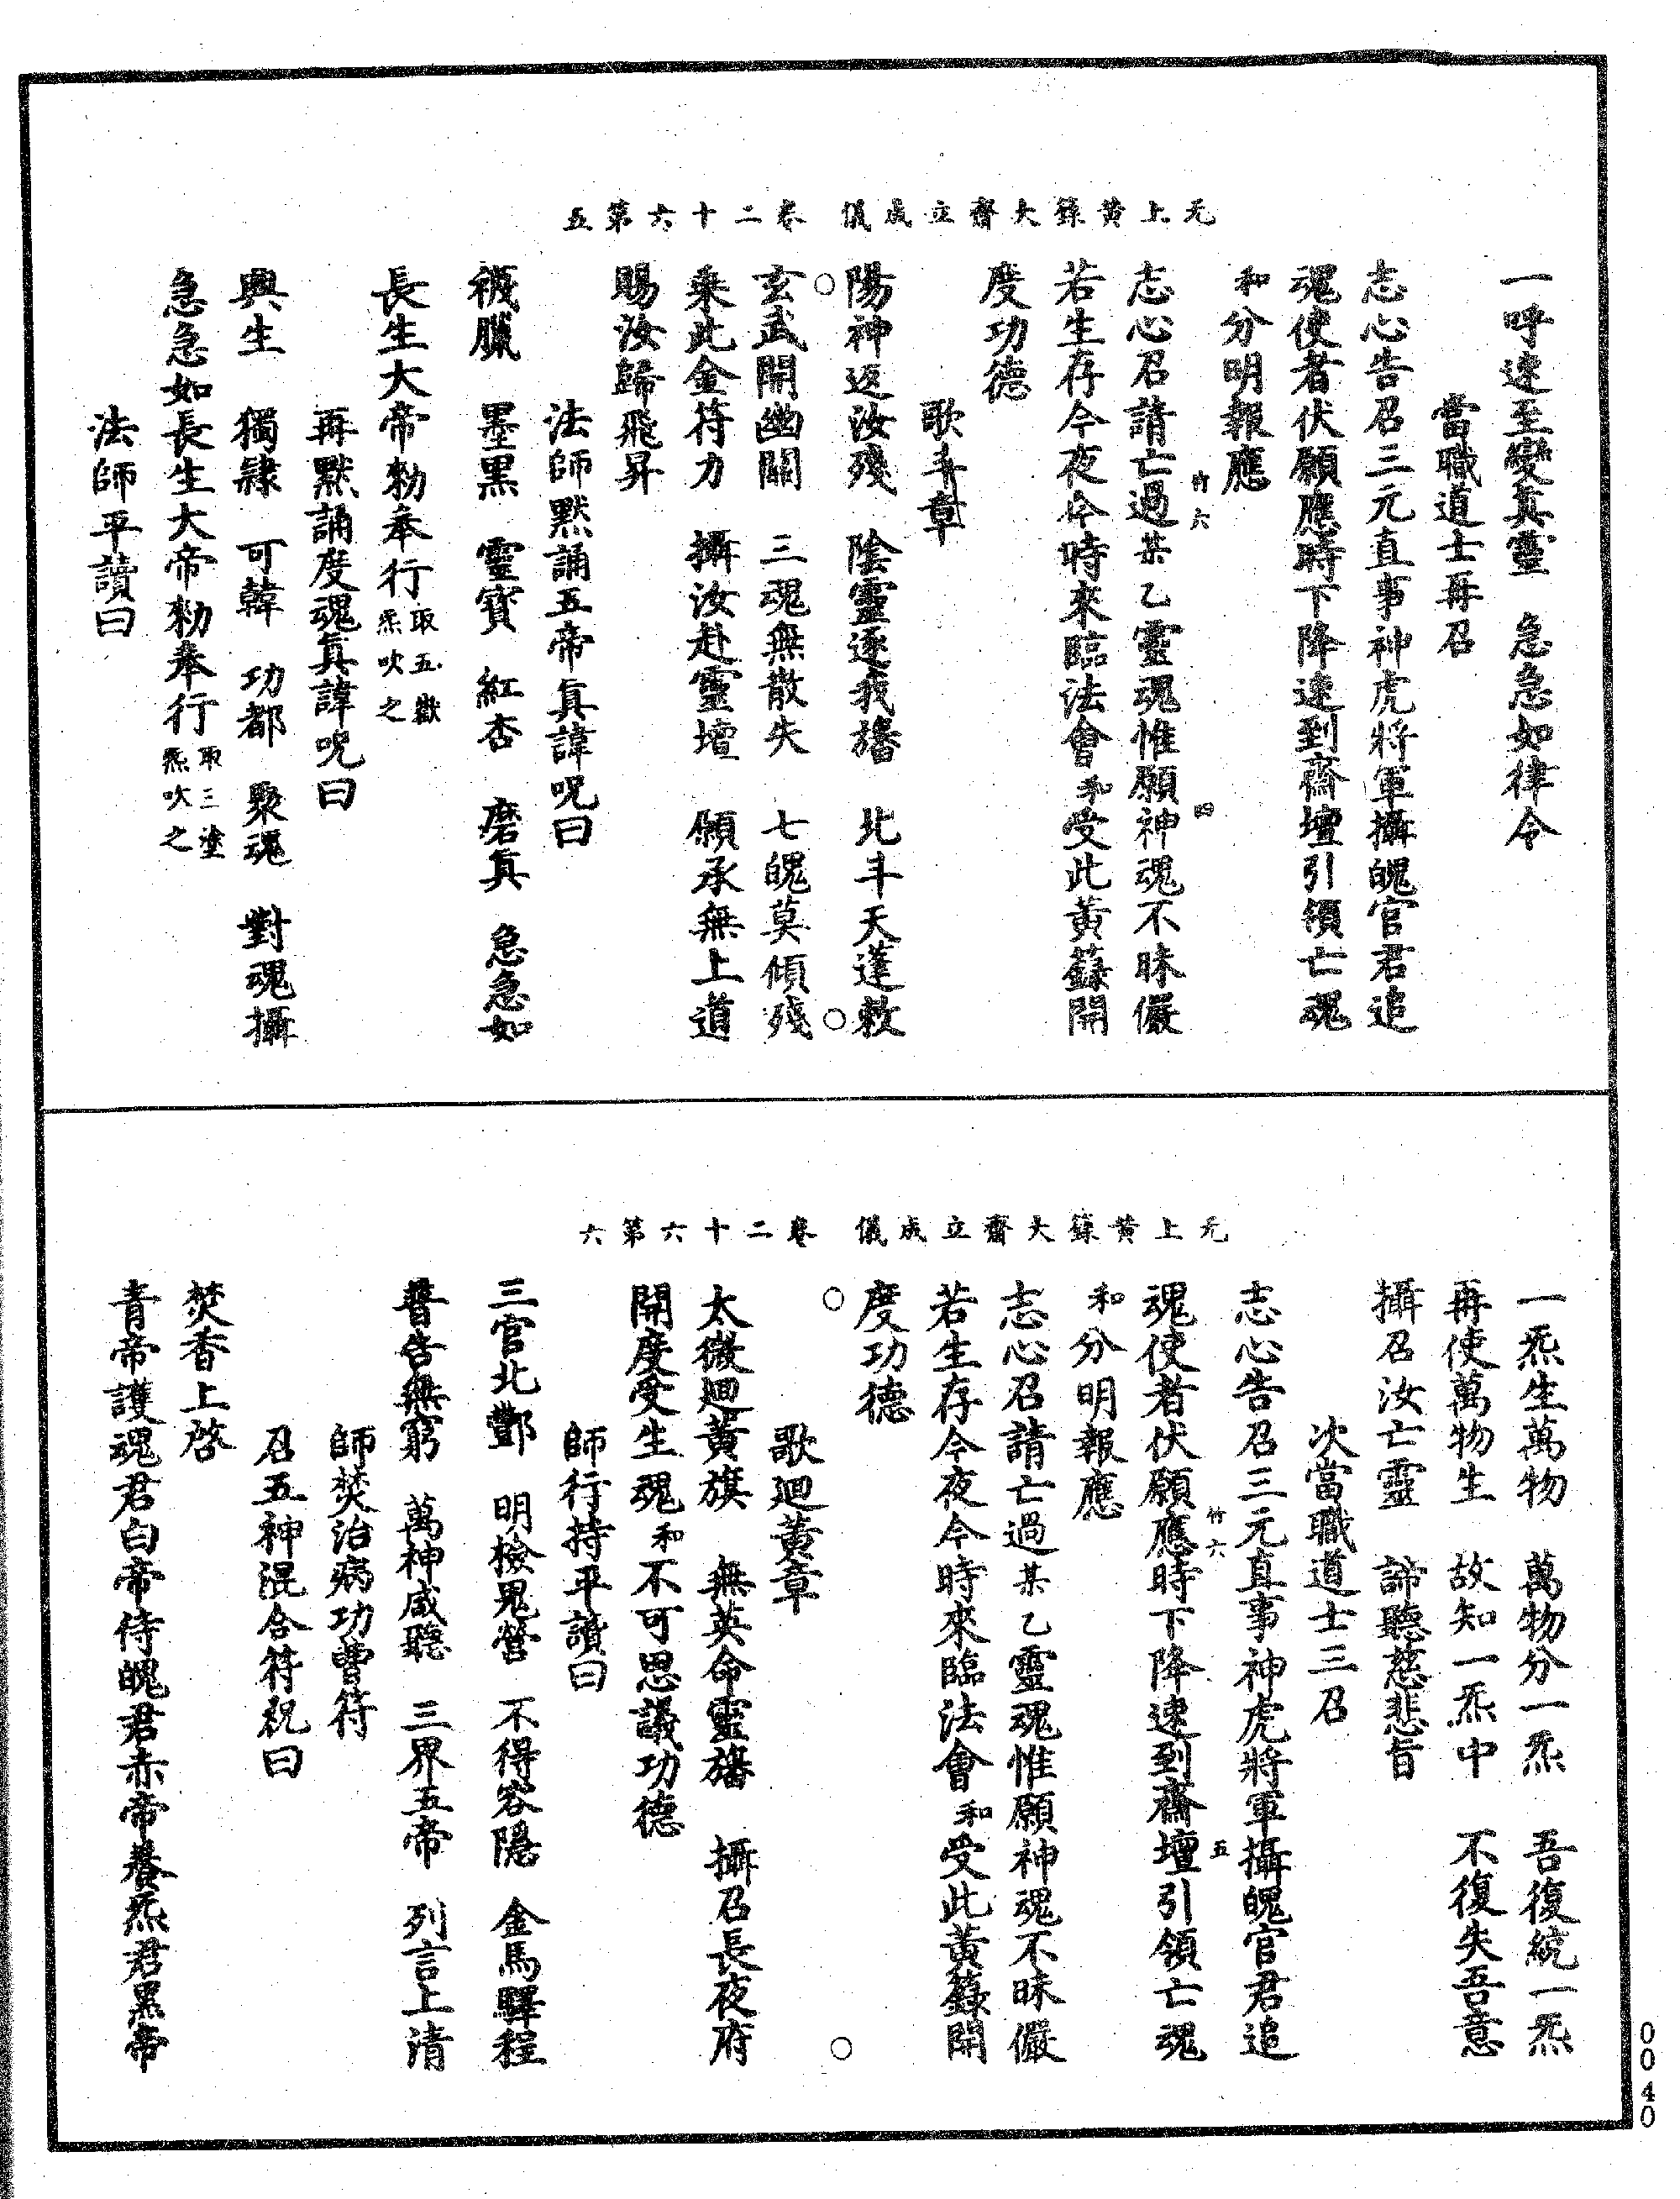 元上黃籙大齋立成儀　卷二十六第五
一呼速至變真靈　急急如律令
當職道士再召
志心告召三元直事神虎將軍攝魄官君追
魂使者伏願應時下降速到齋壇引領亡魂
和分明報應
竹六　四
志心召請亡過某乙靈魂惟願神魂不昧儼
若生存今夜今時來臨法會和受此黃籙開
度功德
歌斗章
陽神返汝殘　陰靈逐我旛　北斗天蓬敕
○　○
玄武開幽關　三魂無散失　七魄莫傾殘
乘此金符力　攝汝赴靈壇　願承無上道
賜汝歸飛昇
法師默誦五帝真諱呪曰
襪臘　墨黑　靈寶　紅杏　磨真　急急如
長生大帝勑奉行取五嶽
炁吹之
再默誦度魂真諱呪曰
興生　獨隸　可韓　功都　聚魂　對魂攝
急急如長生大帝勑奉行取三塗
炁吹之
法師平讀曰
元上黃籙大齋立成儀　卷二十六第六
一炁生萬物　萬物分一炁　吾復統一炁
再使萬物生　故知一炁中　不復失吾意
攝召汝亡靈　諦聽慈悲旨
次當職道士三召
志心告召三元直事神虎將軍攝魄官君追
竹六　五
魂使者伏願應時下降速到齋壇引領亡魂
和分明報應
志心召請亡過某乙靈魂惟願神魂不昧儼
若生存今夜今時來臨法會和受此黃籙開
度功德
○　○
歌迴黃章
太微迴黃旗　無英命靈旛　攝召長夜府
開度受生魂和不可思議功德
師行持平讀曰
三官北酆　明檢鬼營　不得容隱　金馬驛程
普告無窮　萬神咸聽　三界五帝　列言上清
師焚治病功曹符
召五神混合符祝曰
焚香上啓
青帝護魂君白帝侍魄君赤帝養炁君黑帝
0040